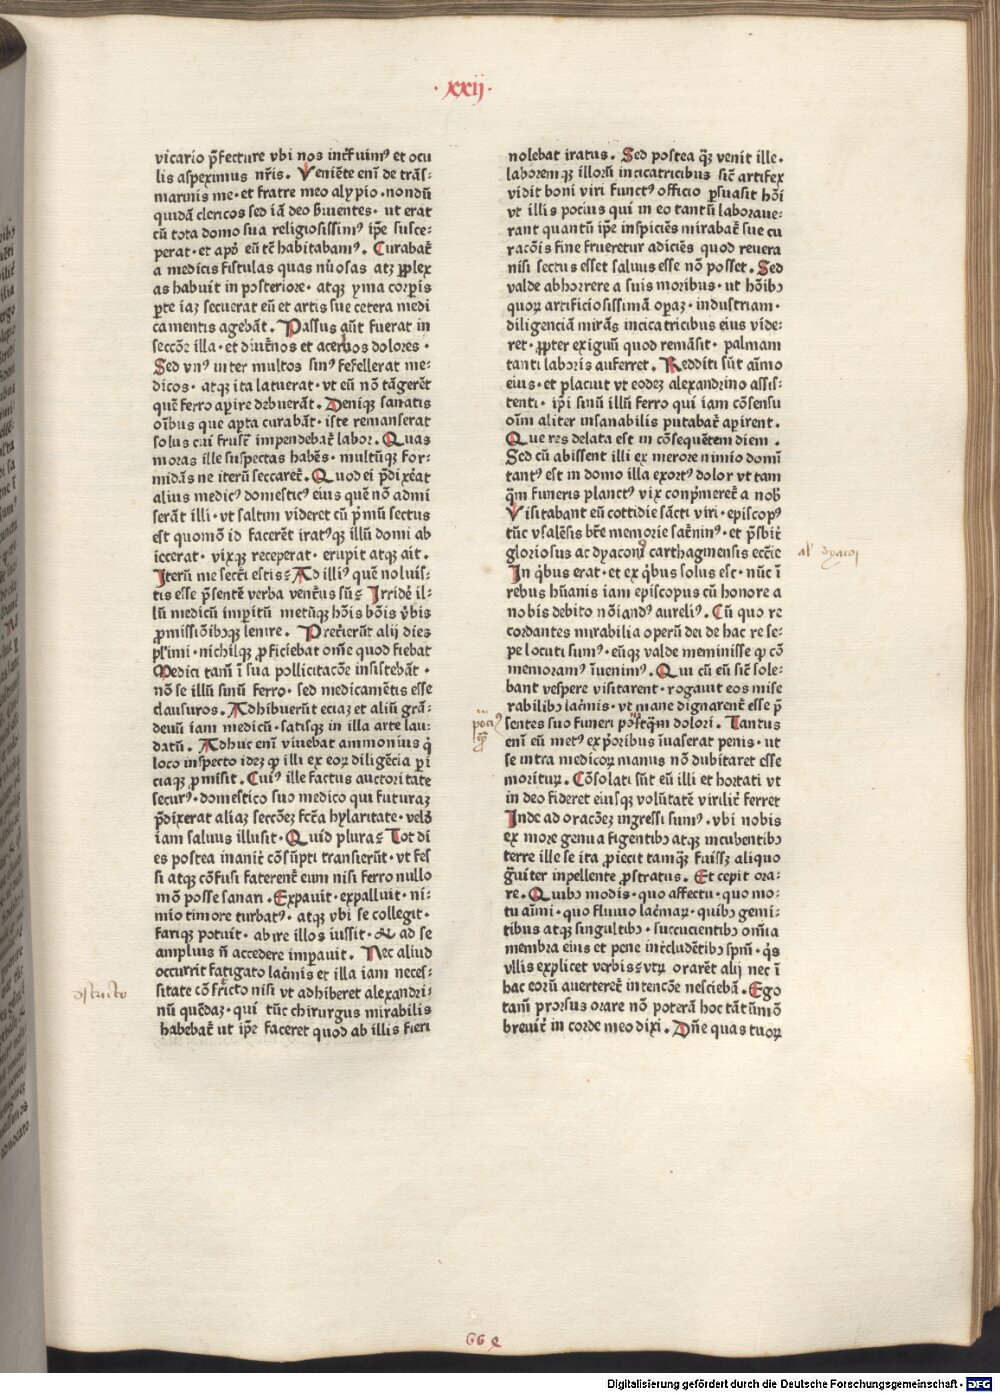 · xxij ·
vicario p̄fecture vbi nos inťfuimꝰ et ocu
lis aspeximus nr̄is. Veniēte eni᷒ de trās⸗
marinis me · et fratre meo alypio · nondū
quidā clericos sed iā deo ẜuientes · ut erat
cū tota domo sua religiosissimꝰ ip̄e susce⸗
perat · et apď eū tē habitabamꝰ. Curabať
a medicis fistulas quas nūosas atꝫ ꝑplex
as habuit in posteriore · atqꝫ yma corꝑis
ꝑte iaꝫ secuerat eū et artis sue cetera medi
camentis agebāt. Passus aūt fuerat in
seccōe illa · et diuťnos et acerbos dolores ·
Sed vnꝰ inter multos sinꝰ fefellerat me⸗
dicos · atqꝫ ita latuerat · vt eū nō tāgerēt
quē ferro aꝑire debuerāt. Deniqꝫ sanatis
oībus que aꝑta curabāt · iste remanserat
solus cui frusť impendebať labor. Quas
moras ille suspectas habēs · multūqꝫ for⸗
midās ne iterū seccareť. Quod ei p̄dixēat
alius medicꝰ domesticꝰ eius quē nō admi
serāt illi · vt saltim videret cū pⁱmū sectus
est quomō id facerēt iratꝰqꝫ illū domi ab
iecerat · vixqꝫ receperat · erupit atqꝫ ait.
Iterū me secťi estis⸗ Ad illiꝰ quē noluis⸗
tis esse p̄sentē verba ventꝰus sū⸗ Irridēr il⸗
lū medicū imꝑitū metūqꝫ hōis bōis v̄bis
ꝓmissiōibꝫqꝫ lenire. Preťierūt alij dies
plⁱimi · nichilqꝫ ꝓficiebat om̄e quod fiebat
Medici tam̄ ī sua pollicitacōe insistebāt ·
nō se illū sinū ferro · sed medicamētis esse
clausuros. Adhibuerūt eciaꝫ et aliū grā⸗
deuū iam medicū · satisqꝫ in illa arte lau⸗
datū. Adhuc eni᷒ viuebat ammonius qⁱ
loco inspecto ideꝫ ꝙ illi ex eoꝝ diligēcia ꝑi
ciaqꝫ ꝓmisit. Cuiꝰ ille factus auctoritate
securꝰ · domestico suo medico qui futuraꝫ
p̄dixerat aliaꝫ seccōeꝫ fc̄ta hylaritate · velď
iam saluus illusit · Quid plura⸗ Tot di
es postea inaniť cōsūpti transierūt · vt fes
si atqꝫ cōfusi faterenť eum nisi ferro nullo
mō posse sanari. Expauit · expalluit · ni⸗
mio timore turbatꝰ · atqꝫ vbi se collegit ·
fariqꝫ potuit · abire illos iussit · & ad se
amplius n̄ accedere imꝑauit. Nec aliud
occurrit fatigato lacⁱmis et illa iam neces⸗
sitate cōstricto nisi vt adhiberet alexandri⸗
nū quēdaꝫ · qui tūc chirurgus mirabilis
habebať ut ip̄e faceret quod ab illis fieri
ɔstricto
nolebat iratus. Sed postea qꝫ̄ venit ille.
laborem qꝫ illorū incicatricibus sic̄ artifex
vidit boni viri functꝰ officio ꝑsuasit hōi
vt illis pocius qui in eo tantū laboraue⸗
rant quantū ip̄e inspiciēs mirabať sue cu
racōis fine frueretur adiciēs quod reuera
nisi sectus esset saluus esse nō posset. Sed
valde abhorrere a suis moribus · ut hōibꝫ
quoꝝ artificiosissimā oꝑaꝫ · industriam ·
diligenciā mirās incicatricibus eius vide⸗
ret · ꝓpter exiguū quod remāsit · palmam
tanti laboris auferret. Redditi sūt aīmo
eius · et placuit vt eodeꝫ alexandrino assis⸗
tenti · ip̄i sinū illū ferro qui iam cōsensu
oīm aliter insanabilis putabať aꝑirent.
Que res delata est in cōsequētem diem.
Sed cū abissent illi ex merore nimio domī
tantꝰ est in domo illa exortꝰ dolor vt tam
qꝫ̄m funeris planctꝰ vix conpⁱmereť a nobꝭ
Visitabant eū cottidie sācti viri · episcopꝰ
tūc vsalēsis btē memorie saťninꝰ · et p̄sbiť
gloriosus ac dyaconꝰ carthaginensis eccīe
In qⁱbus erat · et ex qⁱbus solus est · nūc ī
rebus hūanis iam episcopus cū honore a
nobis debito nōiandꝰ aureliꝰ. Cū quo re
cordantes mirabilia operū dei de hac re se⸗
pe locuti sumꝰ · eūqꝫ valde meminisse ꝙ cō
memoramꝰ īuenimꝰ. Qui cū eū sic̄ sole⸗
bant vespere visitarent · rogauit eos mise
rabilibꝫ lacⁱmis · vt mane dignarenť esse p̄
sentes suo funeri postqꝫ̄m dolori. Tantus
eni᷒ eū metꝰ ex pⁱoribus īuaserat penis · ut
se intra medicoꝝ manus nō dubitaret esse
morituꝝ. Cōsolati sūt eū illi et hortati vt
in deo fideret eiusqꝫ volūtatē viriliť ferret
Inde ad oracōeꝫ ingressi sumꝰ · vbi nobis
ex more genua figentibꝫ atqꝫ incubentibꝫ
terre ille se ita ꝓiecit tamqꝫ̄ fuissꝫ aliquo
gͣuiter inpellente ꝓstratus. Et cepit ora⸗
re. Quibꝫ modis · quo affectu · quo mo⸗
tu aīmi · quo fluuio lacⁱmaꝝ · quibꝫ gemi⸗
tibus atqꝫ singultibꝫ · succucientibꝫ om̄ia
membra eius et pene inťcludētibꝫ spm̄ · qⁱs
vllis explicet verbis⸗ vtꝝ orarēt alij nec ī
hac eorū auerterenť intencōe nesciebā. Ego
tam̄ prorsus orare nō poterā hoc tāt ūmō
breuiť in corde meo dixi. Dn̄e quas tuoꝝ
pociꝰ
al' dyacon
66 e
Digitalisierung gefördert durch die Deutsche Forschungsgemeinschaft - DFG